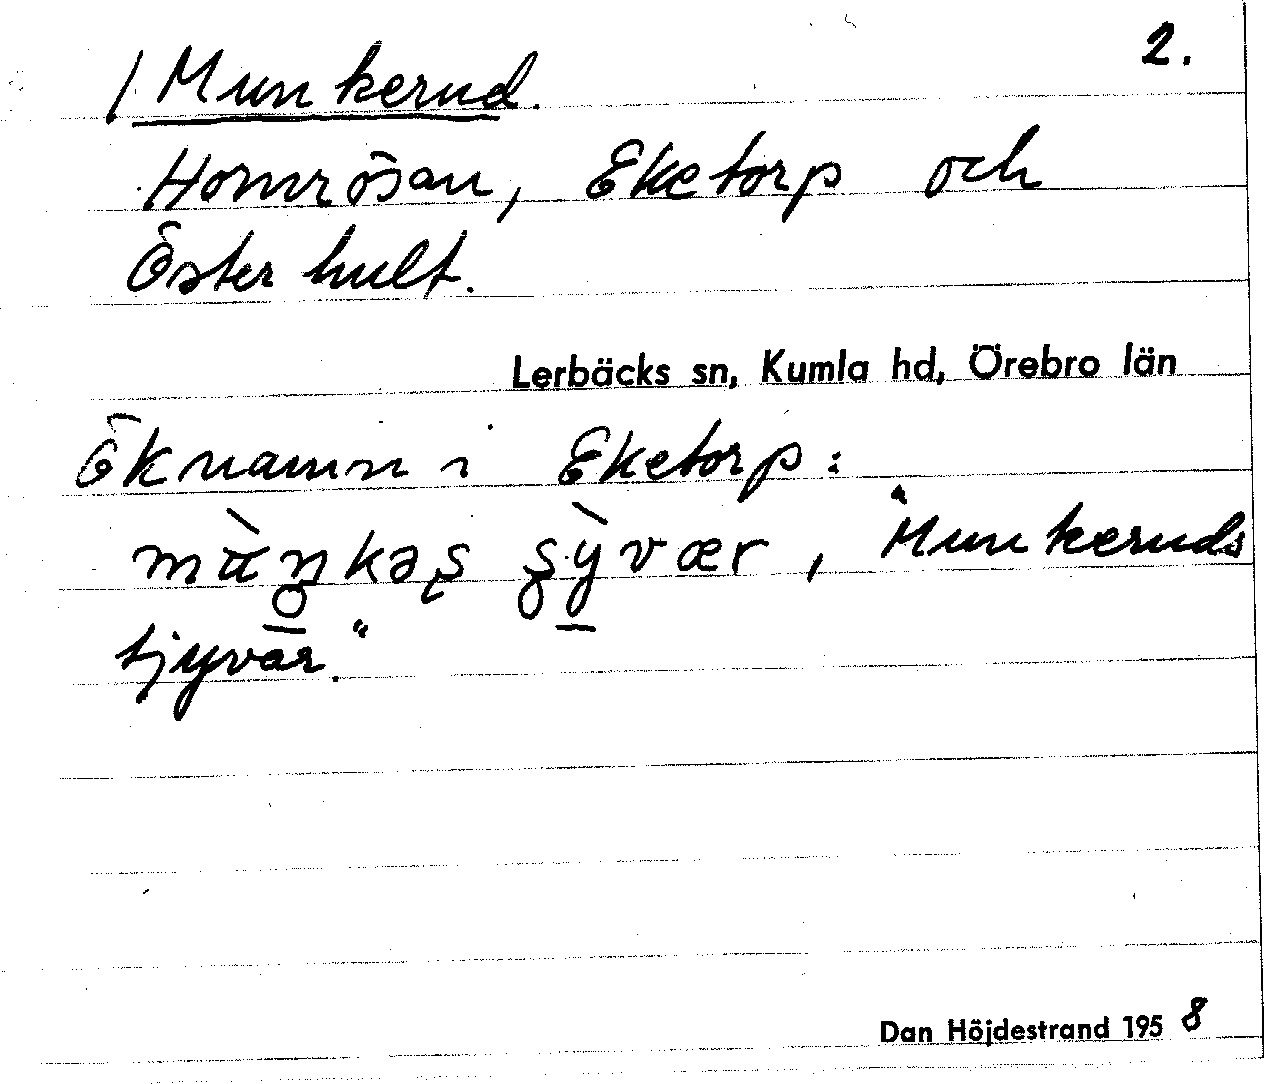 2.
/ Munkerud.
Homrösan, Eketorp och
Österhult.
Lerbäcks sn, Kumla hd, Örebro län
Öknamn i Eketorp:
"Munkeruds
tjyvar."
Dan Höjdestrand 1958